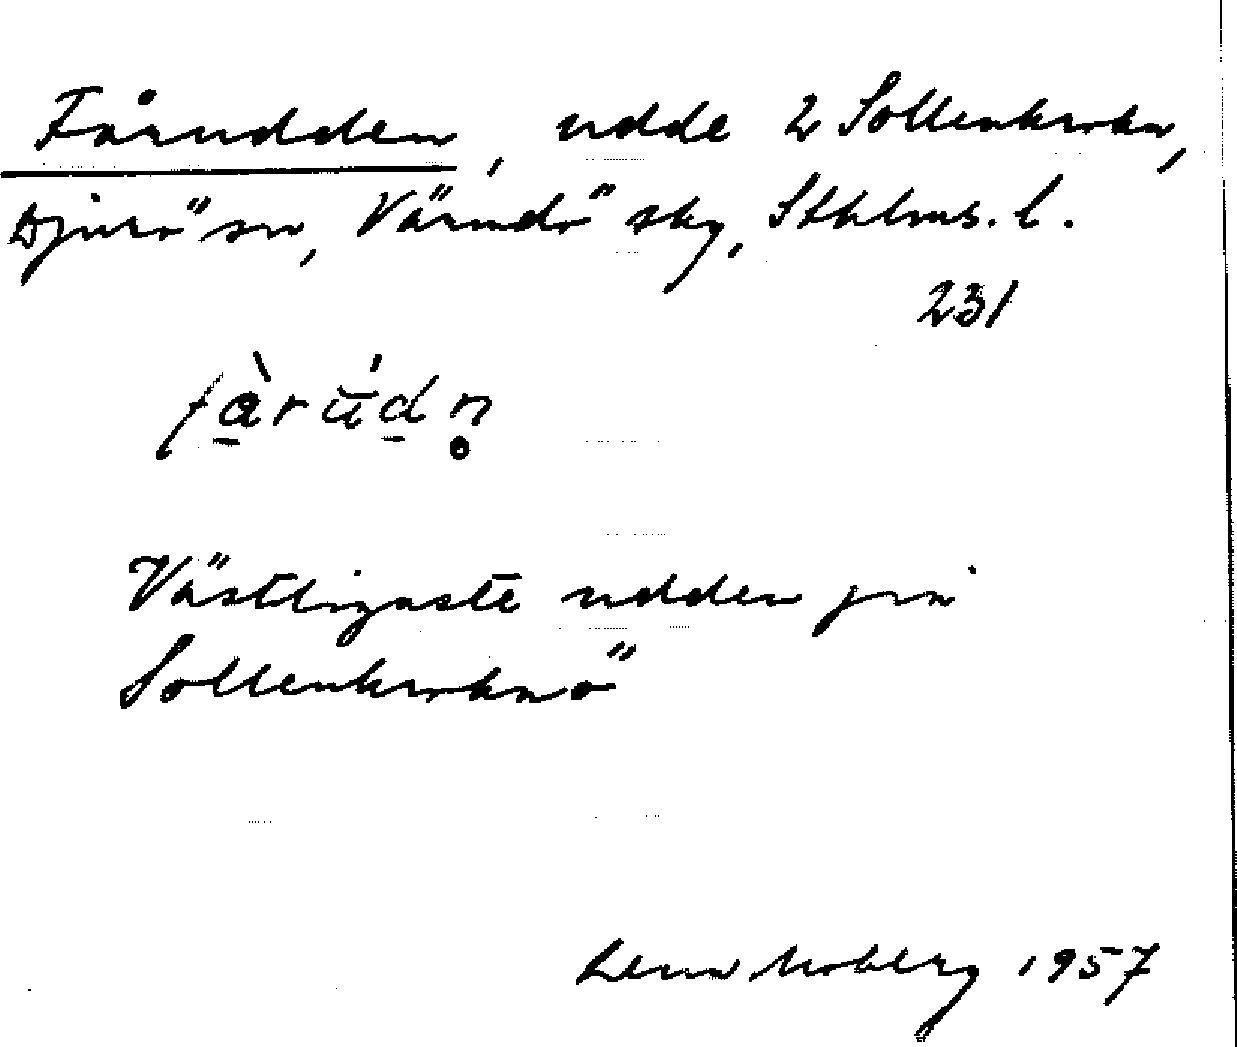 Fårudden, udde 2 Sollenkroka,
Djurö sn, Värmdö skg, Sthlms. l.
231
fàrúdn̥
Västligaste udden på
Sollenkrokaö
Lena Moberg 1957